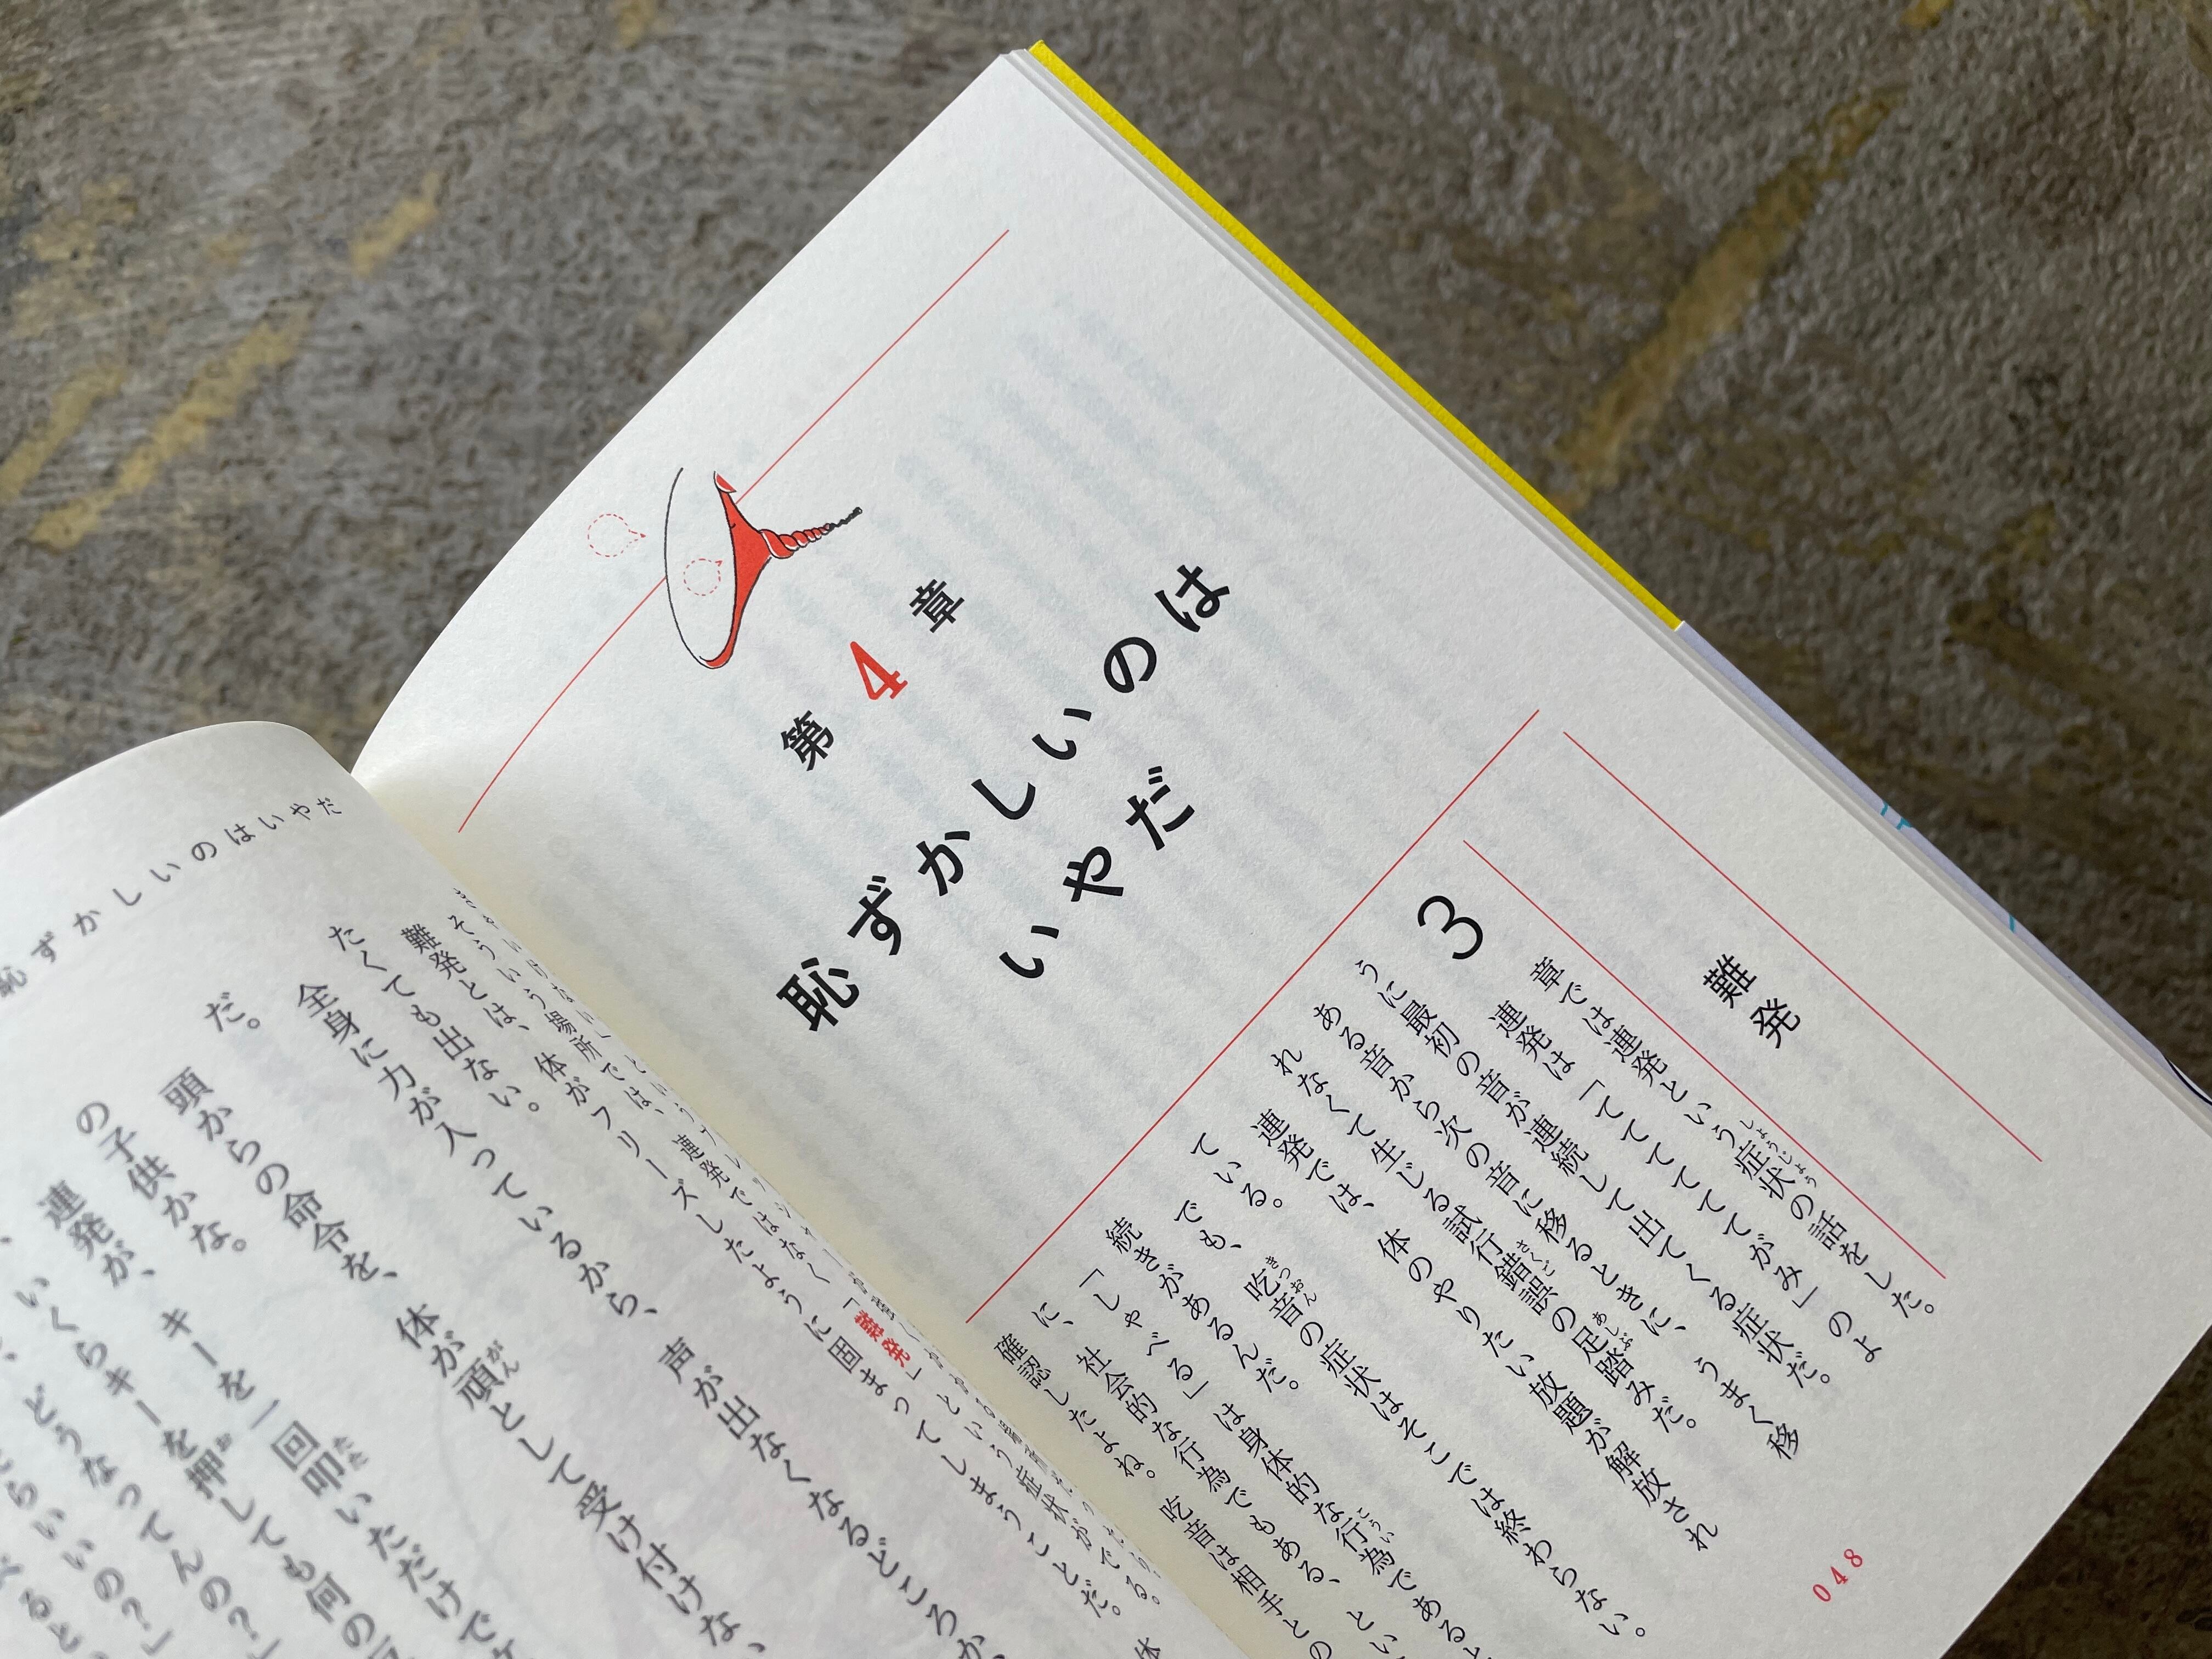 第4章
恥ずかしいのは
いやだ
難発
3章では連発という症状の話をした。
連発は「てててててがみ」のよ
うに最初の音が連続して出てくる症状だ。
ある音から次の音に移るときに、うまく移
れなくて生じる試行錯誤の足踏みだ。
連発では、体のやりたい放題が解放され
ている。
でも、吃音の症状はそこでは終わらない。
続きがあるんだ。
「しゃべる」は身体的な行為であると
に、社会的な行為でもある、とい
確認したよね。吃音は相手との
048
恥ずかしいのはいやだ
そういう場所では、連発ではなく「難発」という症状がでる。
難発とは、体がフリーズしたように固まってしまうことだ。
たくても出ない。
全身に力が入っているから、声が出なくなるどころか、
だ。
頭からの命令を、体が頑として受け付けない、
の子供かな。
連発が、キーを一回叩いただけで
いくらキーを押しても何の
どうなってんの？」
らいいの？」
ると